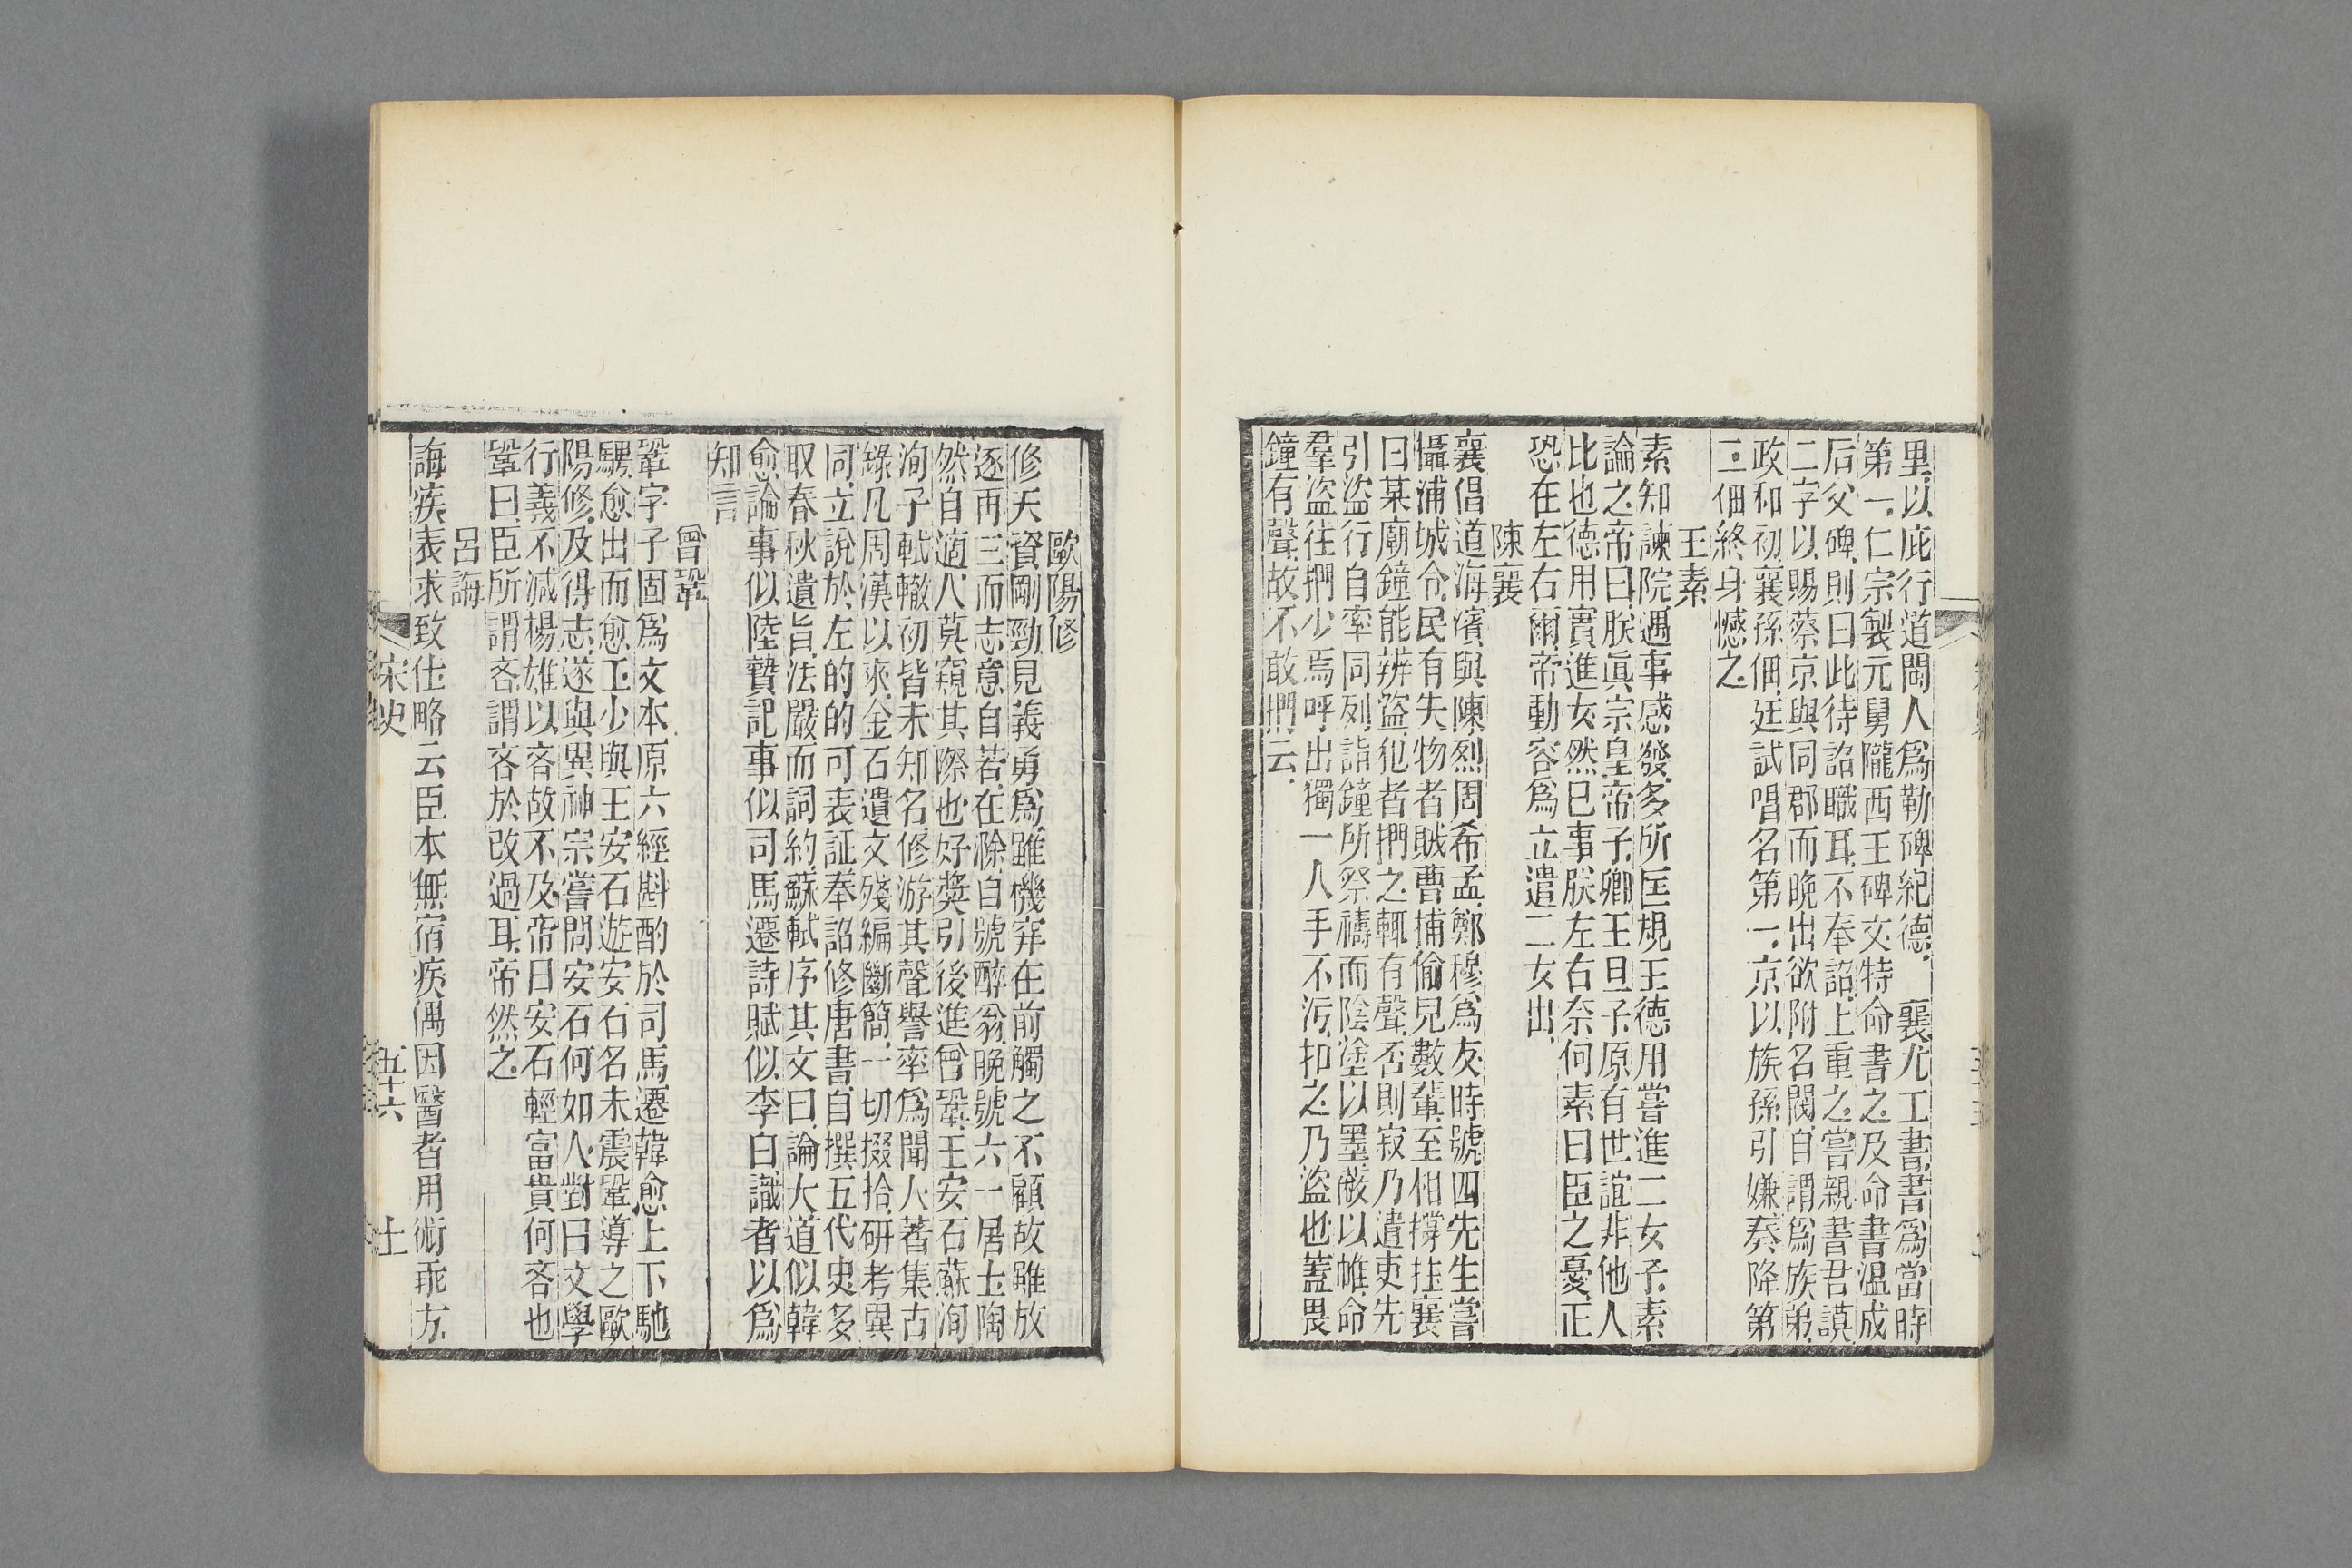 里以庇行道閩人爲勒碑紀德　襄尤工書書爲當時
第一仁宗製元舅隴西王碑文特命書之及命書溫成
后父碑則曰此待詔職耳不奉詔上重之嘗親書君謨
二字以賜蔡京與同郡而晚出欲附名閥自謂爲族弟
政和初襄孫佃廷試唱名第一京以族孫引嫌奏降第
二佃終身憾之
王素
素知諫院遇事感發多所匡規王德用嘗進二女子素
論之帝曰朕眞宗皇帝子卿王旦子原有世誼非他人
比也德用實進女然已事朕左右奈何素曰臣之憂正
恐在左右爾帝動容爲立遣二女出
陳襄
襄倡道海濱與陳烈周希孟鄭穆爲友時號四先生嘗
懾浦城令民有失物者賊曹捕偷見數輩至相撐拄襄
曰某廟鐘能辨盜犯者捫之輒有聲否則寂乃遣吏先
引盜行自率同列詣鐘所祭禱而陰塗以墨蔽以帷命
羣盜往捫少焉呼出獨一人手不污扣之乃盜也蓋畏
鐘有聲故不敢捫云
歐陽修
修天資剛勁見義勇爲雖機穽在前觸之不顧故雖放
逐再三而志意自若在滁自號醉翁晚號六一居士陶
然自適人莫窺其際也好獎引後進曾鞏王安石蘇洵
洵子軾轍初皆未知名修游其聲譽率爲聞人著集古
錄凡周漢以來金石遺文殘編斷簡一切掇拾研考異
同立說於左的的可表証奉詔修唐書自撰五代史多
取春秋遺旨法嚴而詞約蘇軾序其文曰論大道似韓
愈論事似陸贄記事似司馬遷詩賦似李白識者以爲
知言
曾鞏
鞏字子固爲文本原六經斟酌於司馬遷韓愈上下馳
騁愈出而愈工少與王安石遊安石名未震鞏導之歐
陽修及得志遂與異神宗嘗問安石何如人對曰文學
行義不減楊雄以吝故不及帝曰安石輕富貴何吝也
鞏曰臣所謂吝謂吝於改過耳帝然之
呂誨
誨疾表求致仕略云臣本無宿疾偶因醫者用術乖方
宋史　五十六　十